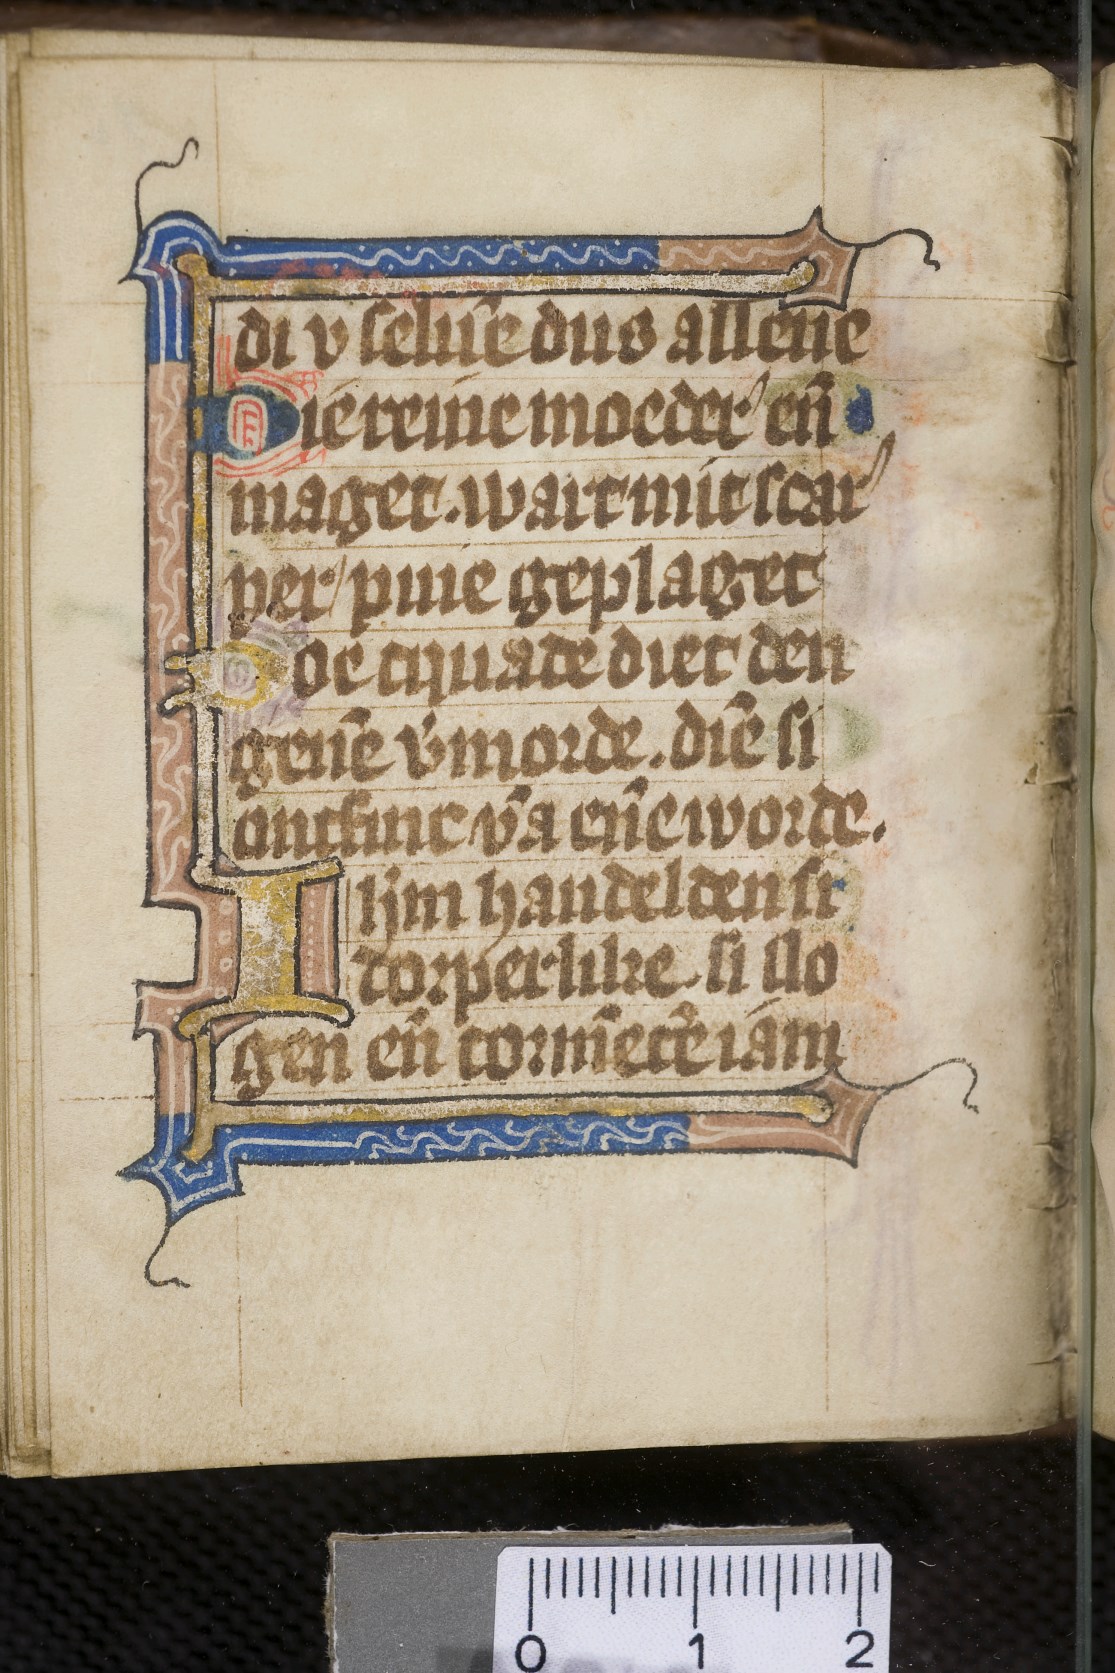 di v seluē dus allene
Die reine moeder en̄
maget. wart mit scar
per pine geplaget
Doe tquade diet den
genē v̓morde. diē si
ontfinc v̄a enē worde.
Ilijm handelden si
dorperlike. si slo
gen en̄ tormētē̓ iam
0 1 2